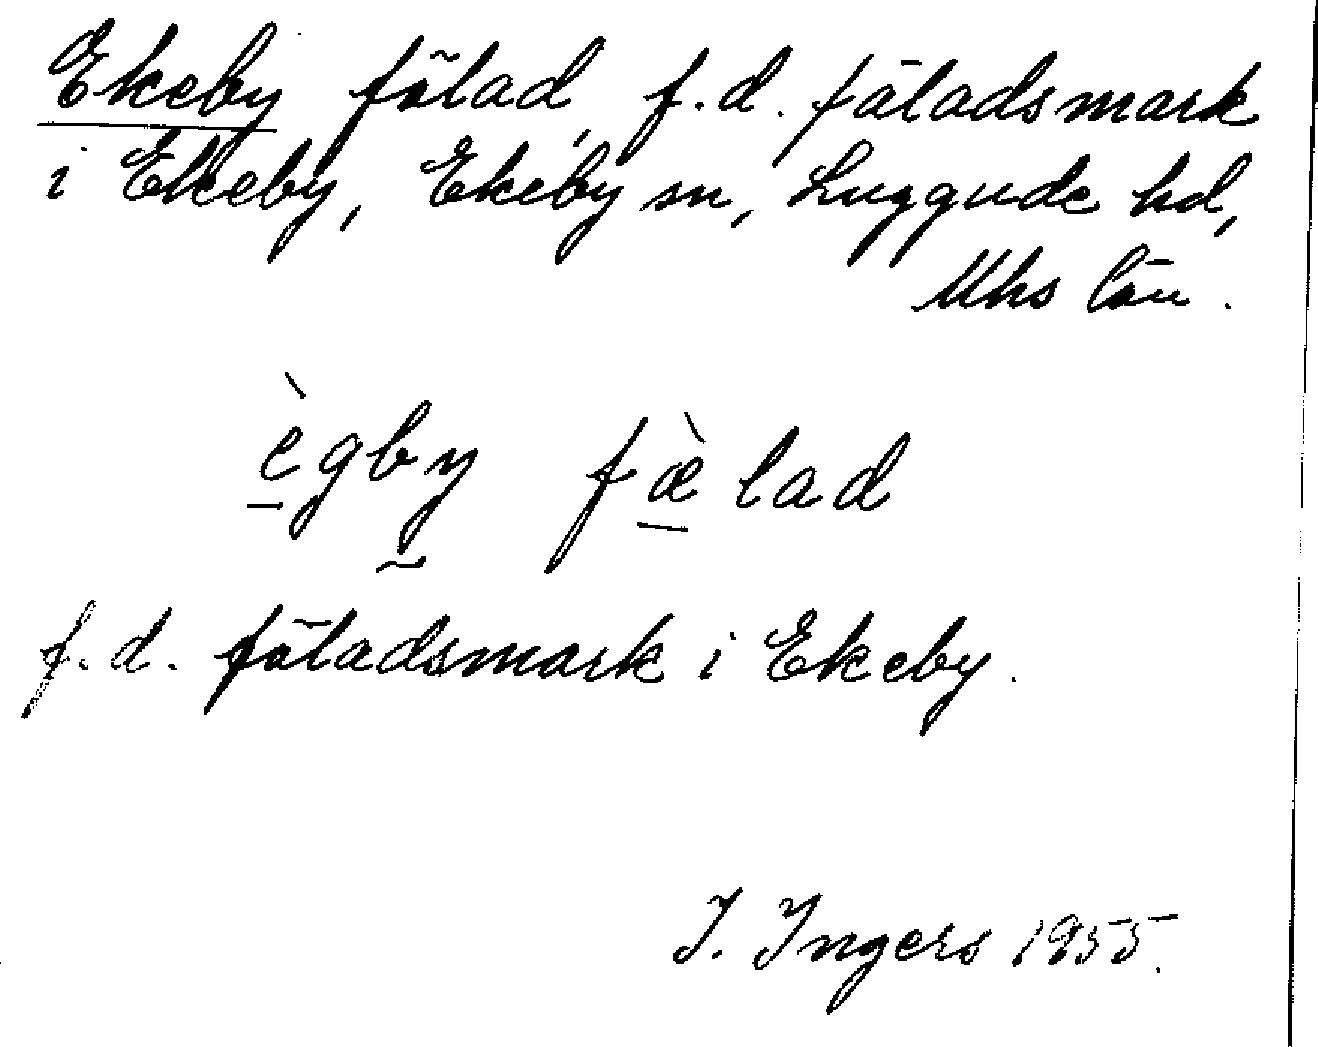 Ekeby fälad, f.d. fäladsmark
i Ekeby, Ekeby sn, Luggude hd,
Mhs län.
ègby fæ̀lad
f.d. fäladsmark i Ekeby.
I. Ingers 1955.